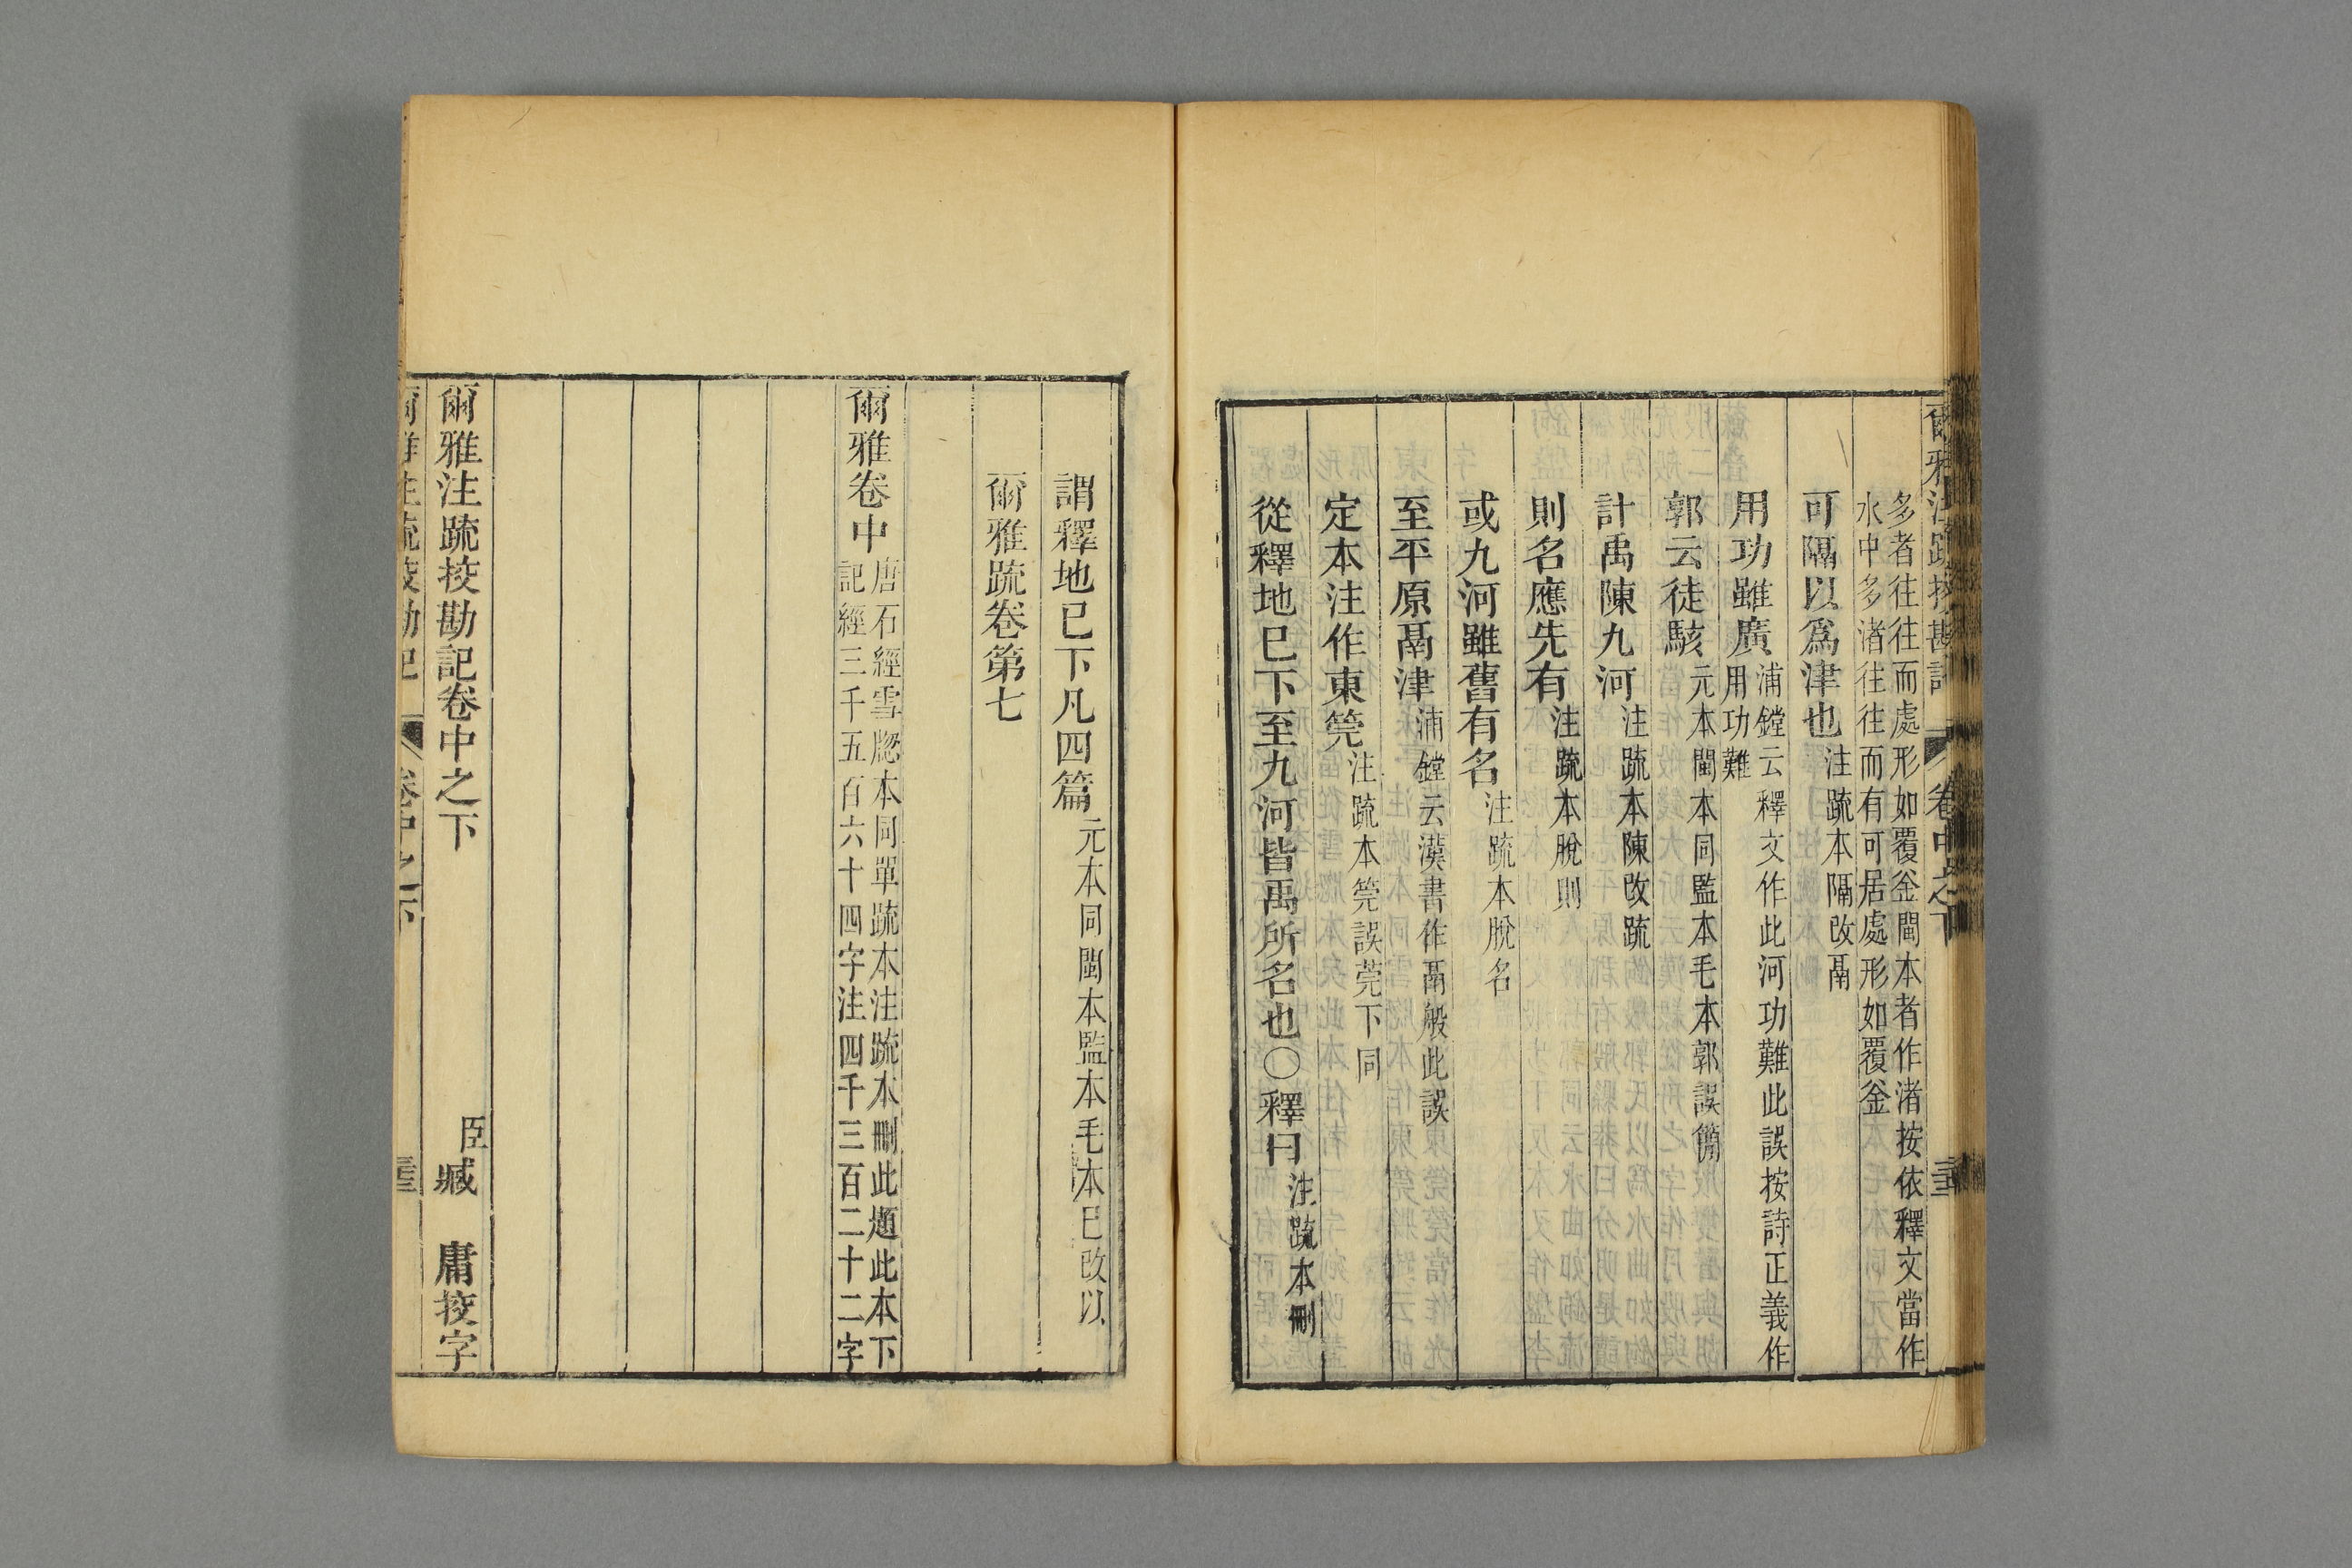 爾雅注疏挍勘記 卷中之下
多者往往而處形如覆釡閩本者作渚按依釋文當作
水中多渚往往而有可居處形如覆釡
可隔以爲津也注疏本隔改鬲
用功雖廣浦鏜云釋文作此河功難此誤按詩正義作
用功難
郭云徒駭元本閩本同監本毛本郭誤簡
計禹陳九河注疏本陳改疏
則名應先有注疏本脫則
或九河雖舊有名注疏本脫名
至平原鬲津浦鏜云漢書作鬲般此誤
定本注作東筦注疏本筦誤莞下同
從釋地已下至九河皆禹所名也〇釋曰注疏本刪
謂釋地已下凡四篇元本同閩本監本毛本已改以
爾雅疏卷第七
爾雅卷中唐石經雪牕本同單疏本注疏本刪此題此本下
記經三千五百六十四字注四千三百二十二字
爾雅注疏挍勘記卷中之下 臣臧 庸挍字
爾雅注疏挍勘記 卷中之下